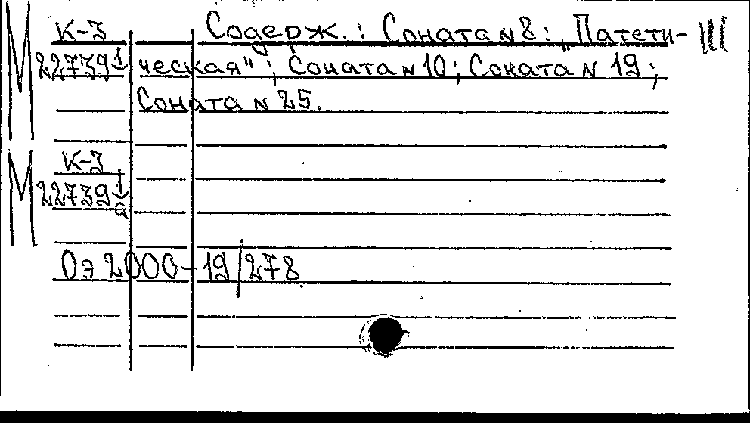 К-3 Содерж.: Соната N 8: „Патети- III
М 22739 1 ческая"; Соната N 10; Соната N 19;
Соната N 25.
К-3
М 22739 1
2
Оэ 2000-19/278